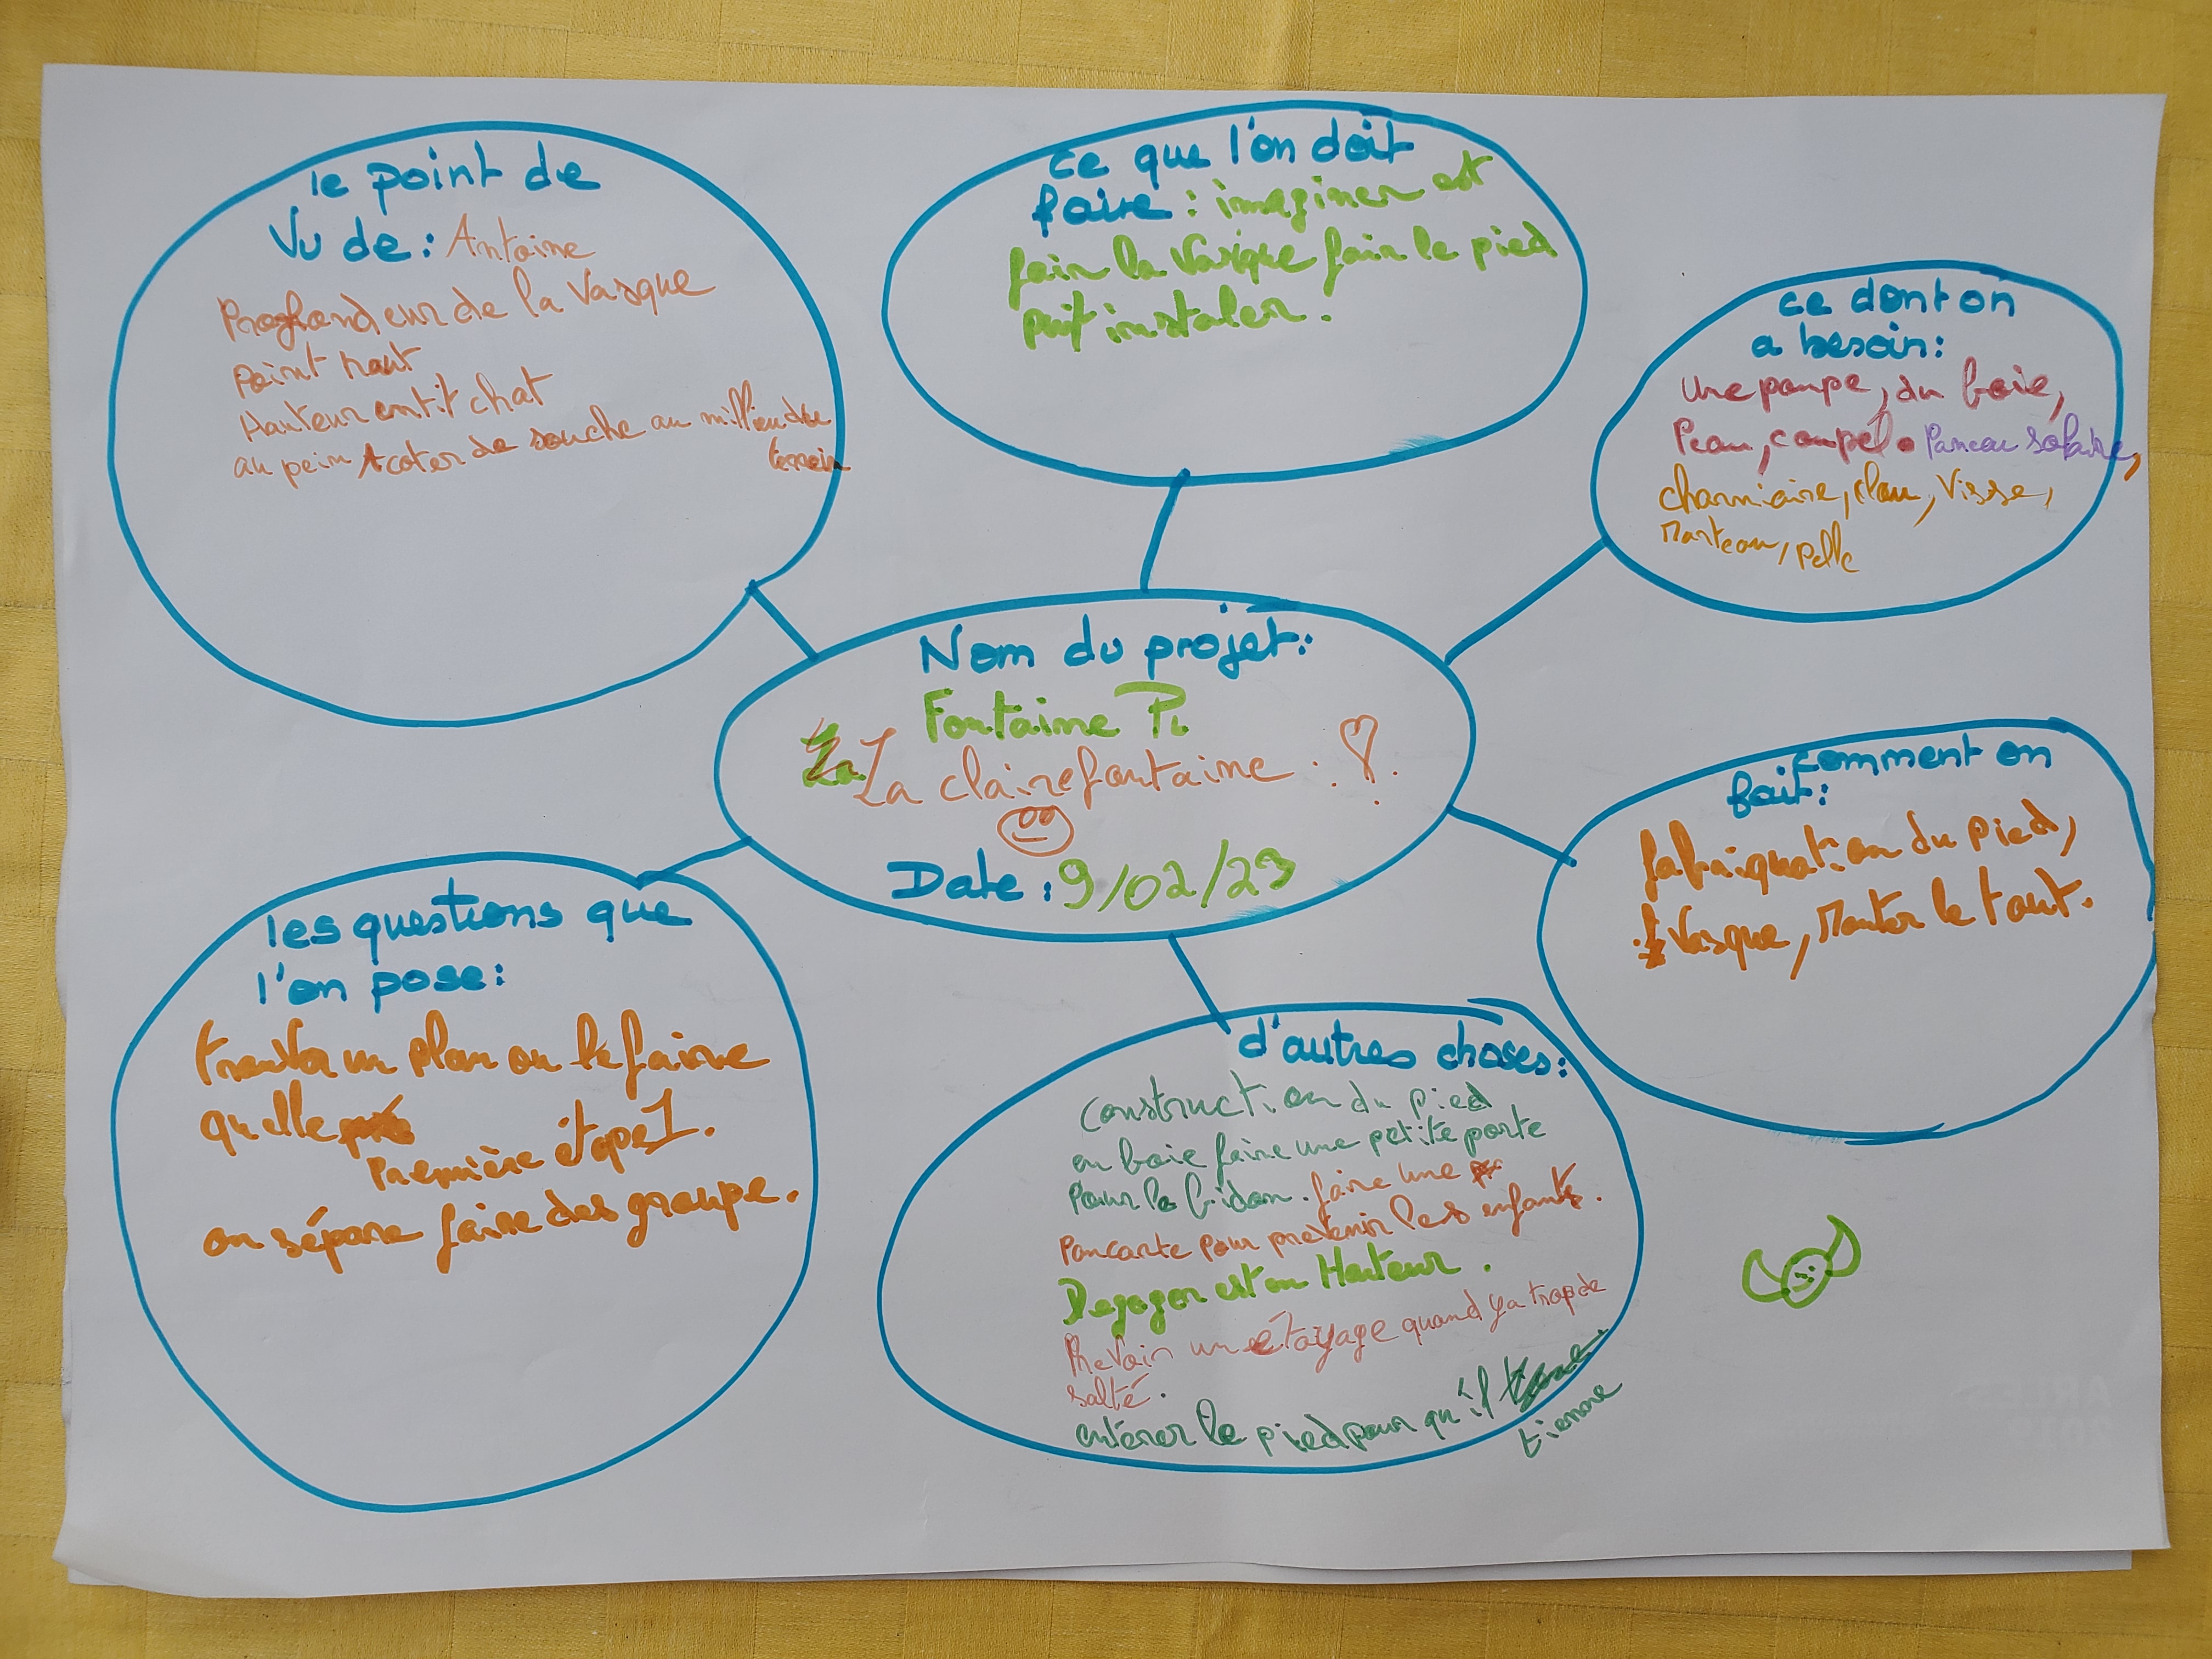 le point de
Vu de : Antoine
Profondeur de la Vasque
Point haut
Hauteur entit chat
au pein Acoter de souche au millieu du
terrain
ce que l'on doit
faire : imaginer est
fair la Vasque fair le pied
puit instaler.
ce dont on
a besoin :
une pompe, du boie,
Peau, coupel. Paneau solaire,
charniaire, clou, Visse,
Marteau, pelle
Nom du projet :
Fontaine Pi
La La clairefontaine :
Date : 9/02/23
comment on
fait :
fabriquation du pied,
Vasque, Monter le tout.
les questions que
l'on pose :
trouver un plan ou le faire
quelle
Première étape 1.
on sépare faire des groupe.
d'autres choses :
construction du pied
en boie faire une petite porte
Pour le bidon. faire une
Pancarte pour prevenir les enfants.
Degager est en Hauteur.
Prevoir un étayage quand ya trop de
salté.
enterer le pied pour qu'il
tienne